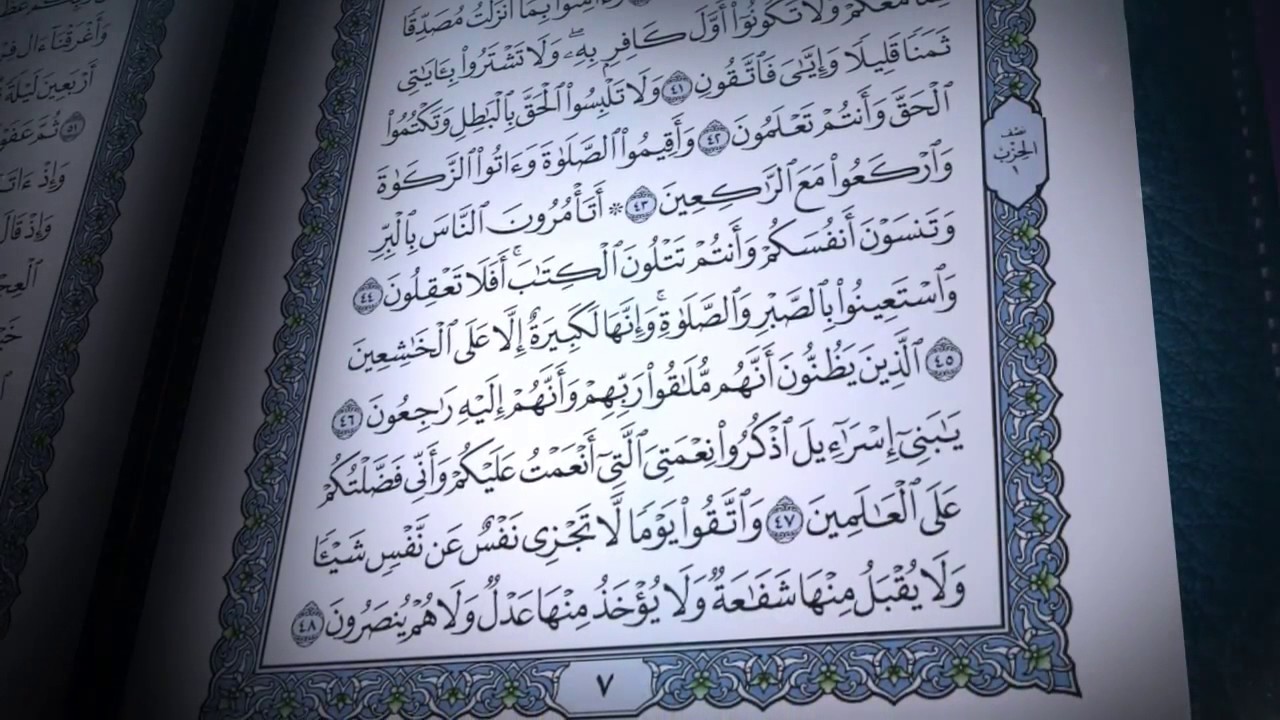 مَعَكُمْ وَلَا تَكُونُوٓا۟ أَوَّلَ كَافِرٍۭ بِهِۦ ۖ وَلَا تَشْتَرُوا۟ بِـَٔايَـٰتِى
ثَمَنًا قَلِيلًا وَإِيَّـٰىَ فَٱتَّقُونِ ٤١ وَلَا تَلْبِسُوا۟ ٱلْحَقَّ بِٱلْبَـٰطِلِ وَتَكْتُمُوا۟
ٱلْحَقَّ وَأَنتُمْ تَعْلَمُونَ ٤٢ وَأَقِيمُوا۟ ٱلصَّلَوٰةَ وَءَاتُوا۟ ٱلزَّكَوٰةَ
وَٱرْكَعُوا۟ مَعَ ٱلرَّٰكِعِينَ ٤٣ * أَتَأْمُرُونَ ٱلنَّاسَ بِٱلْبِرِّ
وَتَنسَوْنَ أَنفُسَكُمْ وَأَنتُمْ تَتْلُونَ ٱلْكِتَـٰبَ ۚ أَفَلَا تَعْقِلُونَ ٤٤
وَٱسْتَعِينُوا۟ بِٱلصَّبْرِ وَٱلصَّلَوٰةِ ۚ وَإِنَّهَا لَكَبِيرَةٌ إِلَّا عَلَى ٱلْخَـٰشِعِينَ
٤٥ ٱلَّذِينَ يَظُنُّونَ أَنَّهُم مُّلَـٰقُوا۟ رَبِّهِمْ وَأَنَّهُمْ إِلَيْهِ رَٰجِعُونَ ٤٦
يَـٰبَنِىٓ إِسْرَٰٓءِيلَ ٱذْكُرُوا۟ نِعْمَتِىَ ٱلَّتِىٓ أَنْعَمْتُ عَلَيْكُمْ وَأَنِّى فَضَّلْتُكُمْ
عَلَى ٱلْعَـٰلَمِينَ ٤٧ وَٱتَّقُوا۟ يَوْمًا لَّا تَجْزِى نَفْسٌ عَن نَّفْسٍ شَيْـًٔا
وَلَا يُقْبَلُ مِنْهَا شَفَـٰعَةٌ وَلَا يُؤْخَذُ مِنْهَا عَدْلٌ وَلَا هُمْ يُنصَرُونَ ٤٨
٧
نصف
الحزب
١
وَأَغْرَقْنَآ ءَالَ
أَرْبَعِينَ لَيْلَةً
٥١ ثُمَّ عَفَوْ
وَإِذْ ءَاتَ
وَإِذْ قَالَ
ٱلْعِجْ